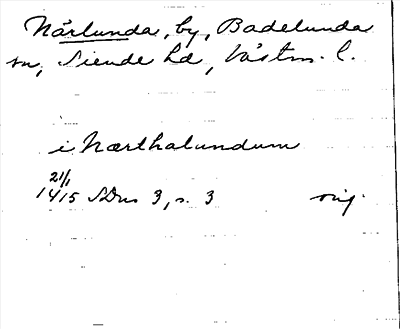 Närlunda, by, Badelunda
sn, Siende hd, Västm. l.
i Nærthalundum
21/1
1415 SDns 3, s. 3 orig.